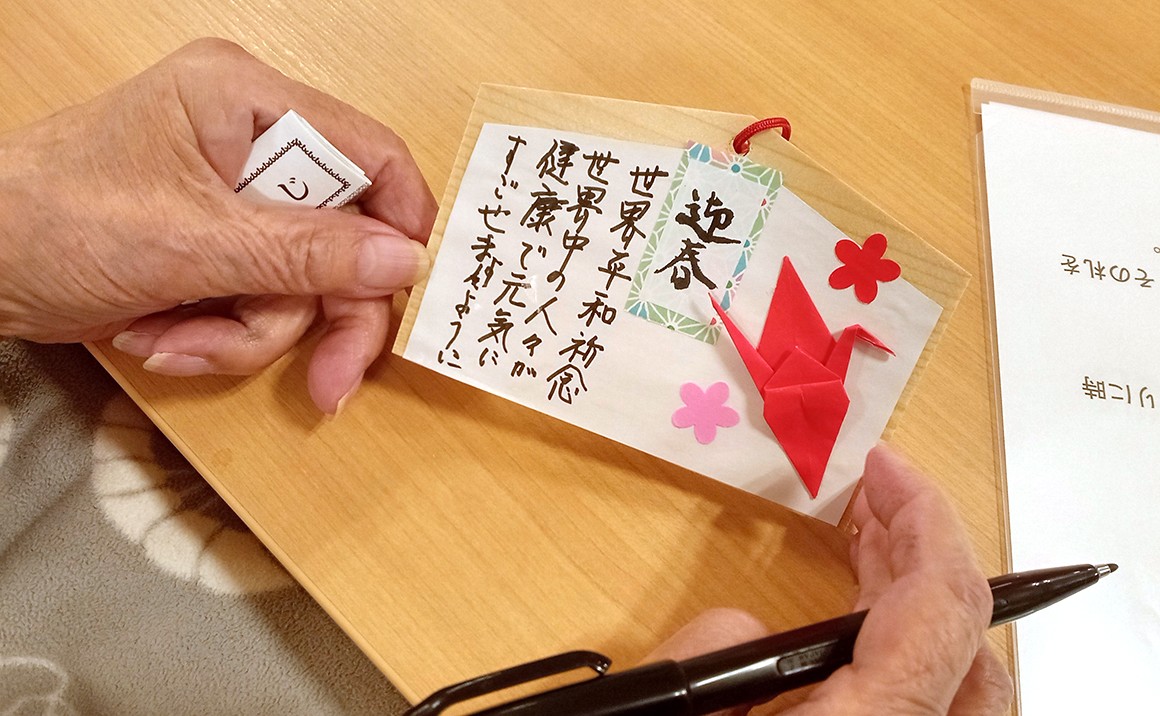 迎春
世界平和祈念
世界中の人々が
健康で元気に
すごせますように
じ
その札を
。
りに時